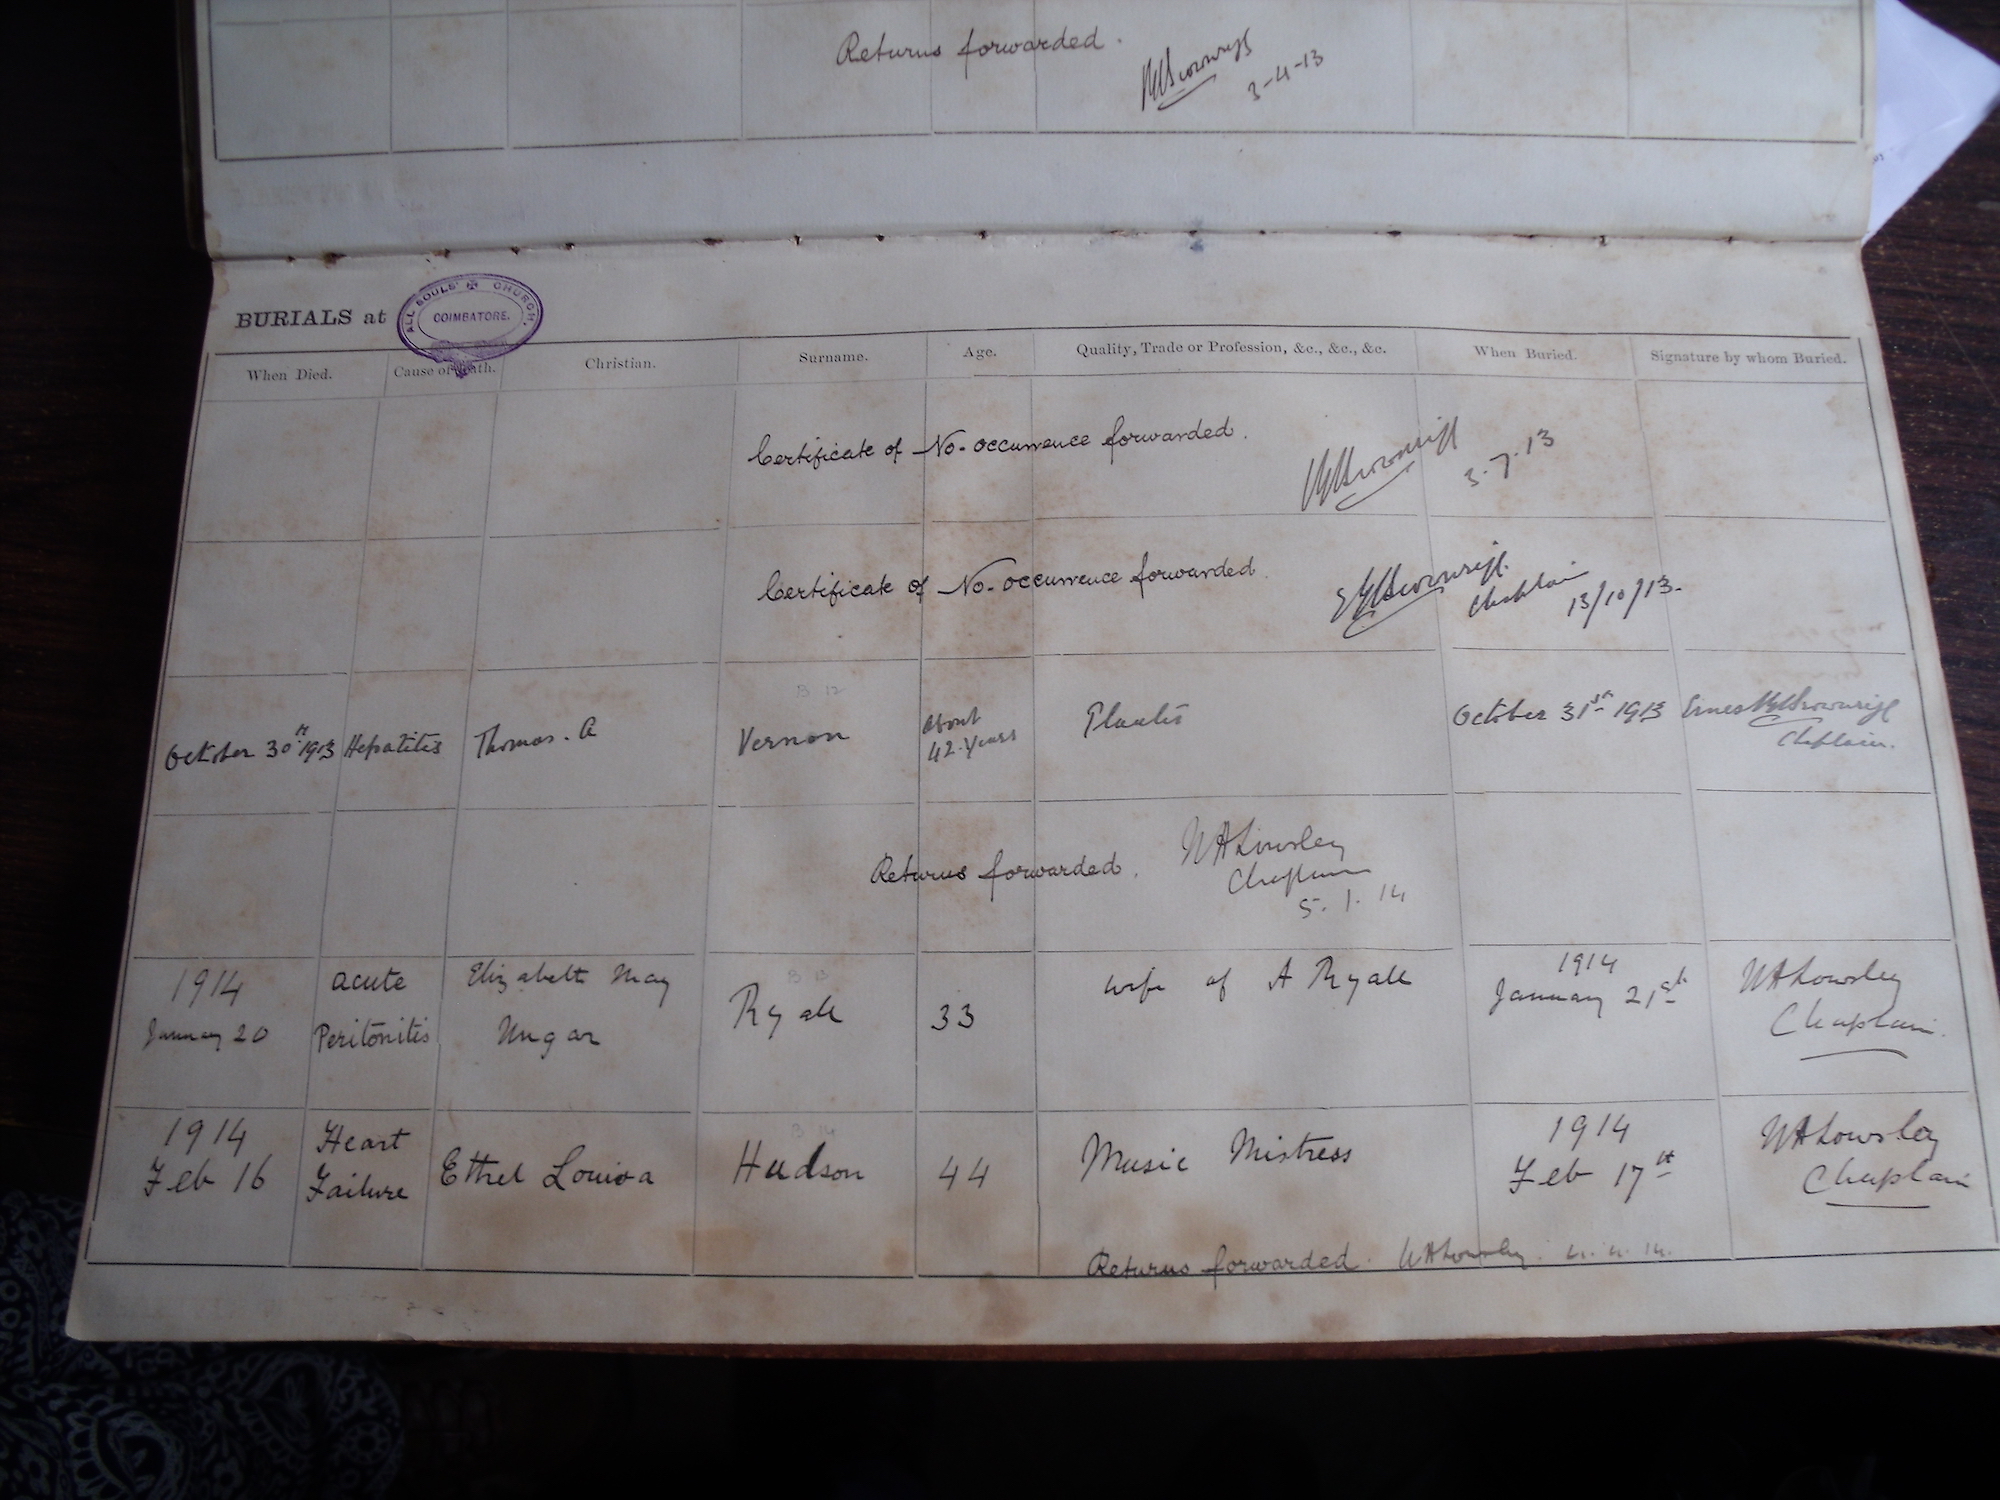 Returns forwarded.
3-4-13
BURIALS at
ALL SOULS' CHURCH.
COIMBATORE.
When Died. Cause of Death. Christian. Surname. Age. Quality, Trade or Profession, &c., &c., &c. When Buried. Signature by whom Buried.
Certificate of No-occurrence forwarded.
3.7.13
Certificate of No-occurrence forwarded.
Chaplain
13/10/13.
B 12
October 30th 1913 Hepatitis Thomas. A Vernon about 42. years Planter October 31st 1913 Ernest
Chaplain.
Returns forwarded. WALowsley
Chaplain
5. 1. 14
B 13
1914 acute Elizabeth May Ryall 33 wife of A Ryall 1914 WALowsley
January 20 Peritonitis Ungar January 21st Chaplain.
B 14
1914 Heart Ethel Louisa Hudson 44 Music Mistress 1914 WALowsley
Feb 16 Failure Feb 17th Chaplain
Returns forwarded. WALowsley.